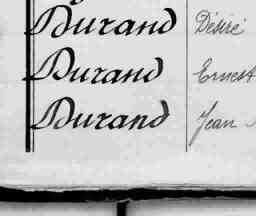 Durand Désiré
Durand Ernest
Durand Jean